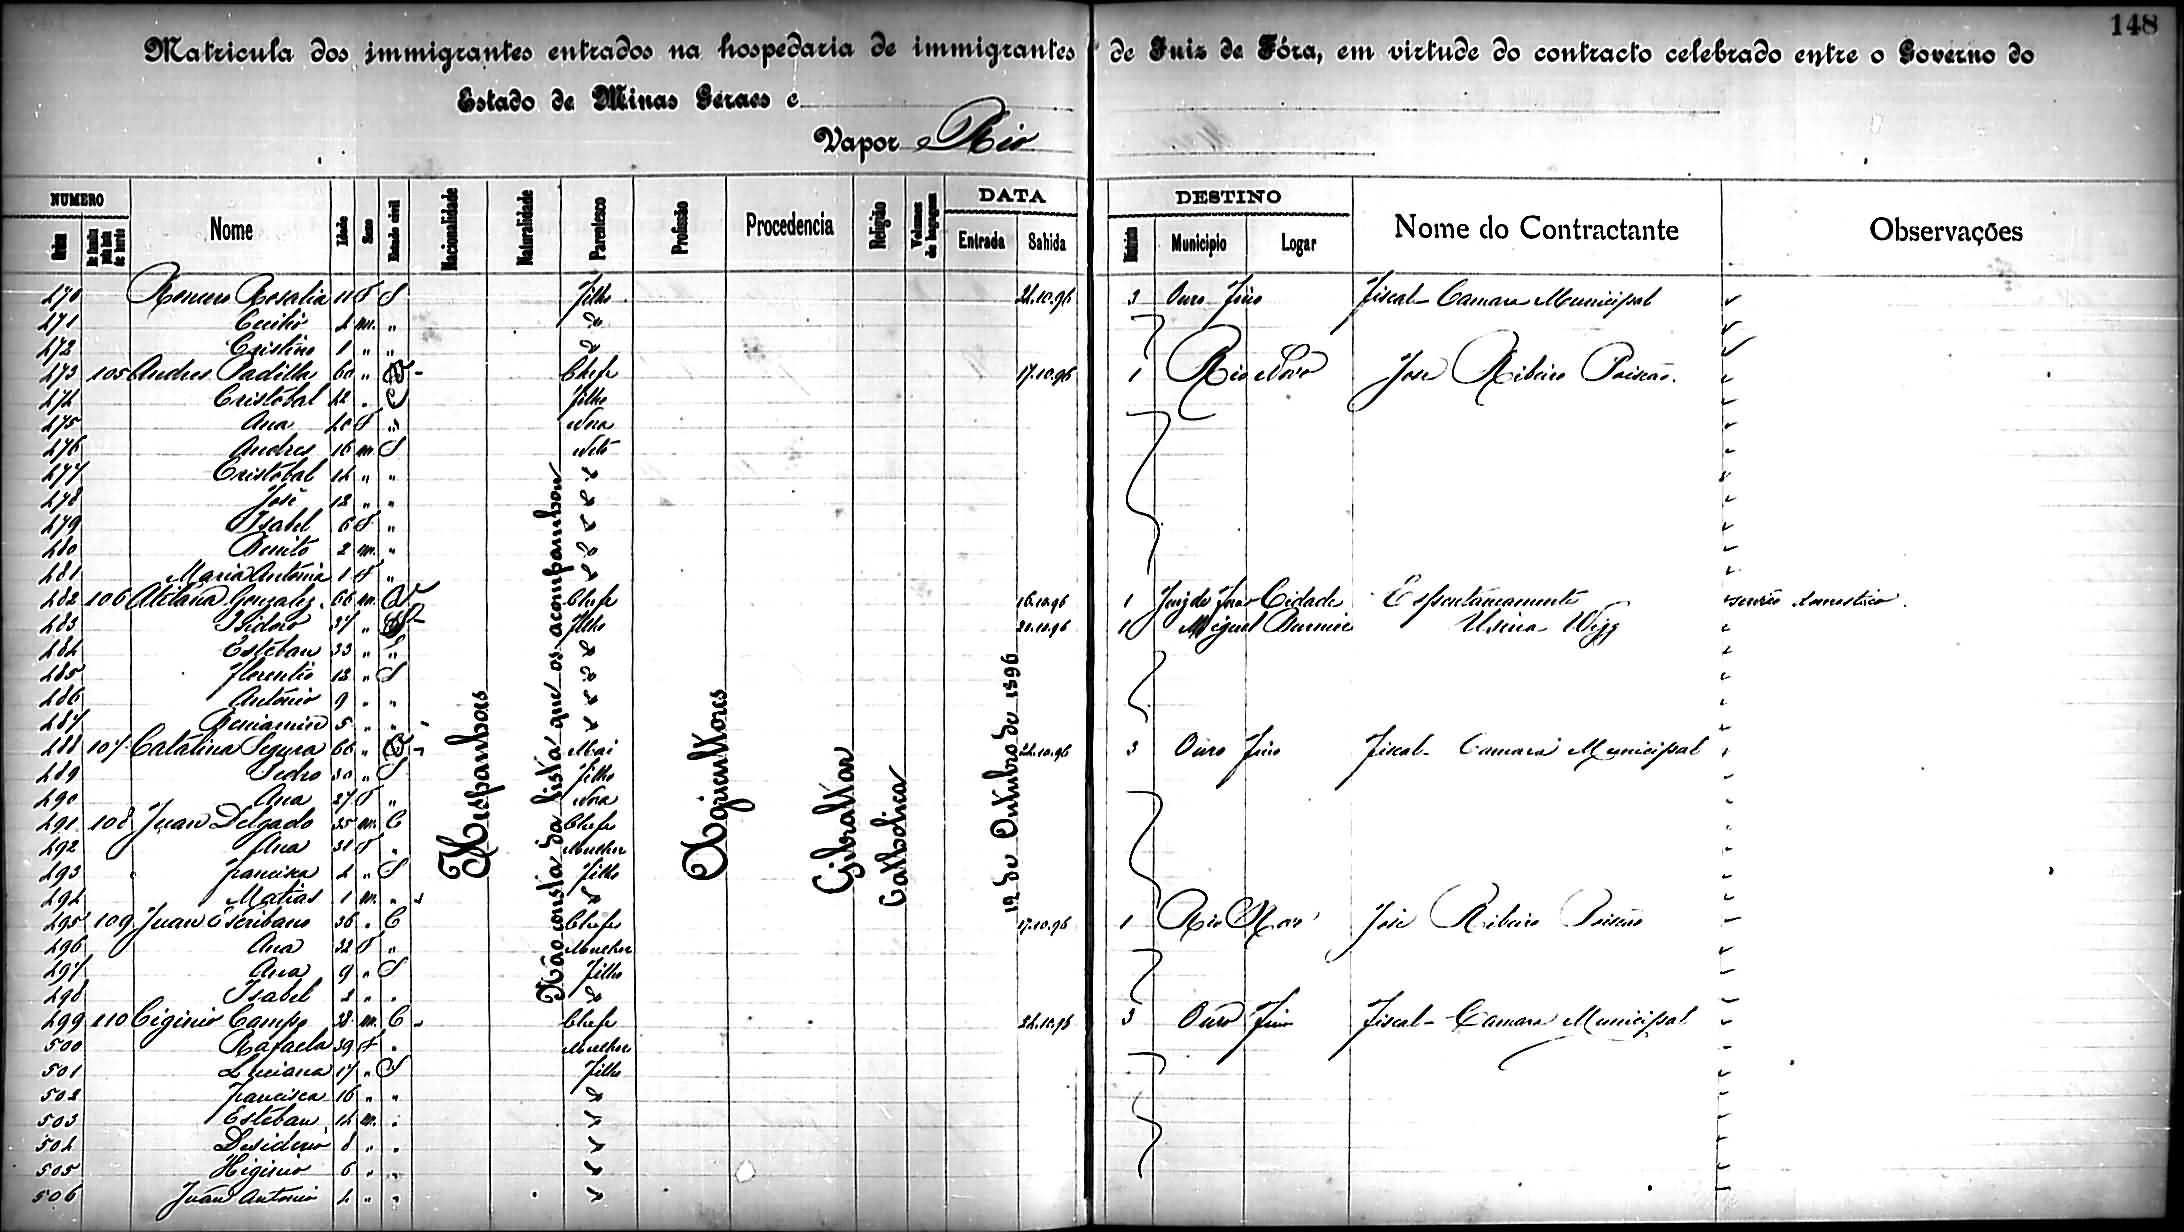 148
Matricula dos immigrantes entrados na hospedaria de immigrantes de Juiz de Fóra, em virtude do contracto celebrado entre o Governo do
Estado de Minas Geraes e
Vapor Rio
NUMERO DATA DESTINO
Ordem De familia pela lista de bordo Nome Idade Sexo Estado civil Nacionalidade Naturalidade Parentesco Profissão Procedencia Religião Volumes de bagagem Entrada Sahida Districto Municipio Logar Nome do Contractante Observações
470 Romero Rosalia 11 F S Filho 24.10.96 3 Ouro Fino Fiscal Camara Municipal
471 Cecilio 4 m. " do
472 Cristino 1 " " do
473 105 Andres Padilla 60 " V Chefe 17.10.96 1 Rio Novo José Ribeiro
474 Cristobal 42 " C Filho
475 Ana 40 F " Nora
476 Andres 16 m S Neto
477 Cristobal 14 " " do
478 José 12 " " do
479 Isabel 6 F " do
480 Benito 2 m. " do
481 Maria Antonia 1 F " do
482 106 Atilana Gonzalez 66 m. V Chefe 16.10.96 1 Juiz de Fora Cidade Espontaneamente serviço domestico
483 Isidoro 37 " Filho 20.10.96 1 Miguel Burnier Usina Wigg
484 Esteban 33 " " do
485 Florentio 12 " S do
486 Antonio 9 " " do
487 Beniamin 5 " " do
488 107 Catalina Segura 66 " V Mai 24.10.96 3 Ouro Fino Fiscal Camara Municipal
489 Pedro 30 " S Filho
490 Ana 27 F " Nora
491 108 Juan Delgado 35 m. C Chefe
492 Ana 31 F " Mulher
493 Francisca 4 " S Filho
494 Matias 1 m. " do
495 109 Juan Escribano 36 " C Chefe 17.10.96 1 Rio Novo José Ribeiro
496 Ana 32 F " Mulher
497 Ana 9 " S Filho
498 Isabel 2 " " do
499 110 Ciginio Campo 38 m. C Chefe 24.10.96 3 Ouro Fino Fiscal Camara Municipal
500 Rafaela 39 F " Mulher
501 Luciana 17 " S Filho
502 Francisca 16 " " do
503 Esteban 14 m. " do
504 Desiderio 8 " " do
505 Higinio 6 " " do
506 Juan Antonio 4 " " do
Hespanhoes
Não consta da lista que os acompanhou
Agricultores
Gibraltar
Catholica
12 de Outubro de 1896